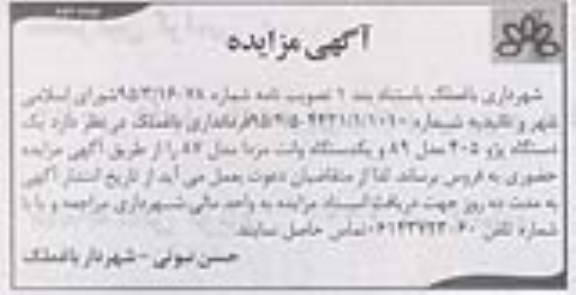 آگهی مزایده
شهرداری باغملک باستناد بند ۱ تصویب نامه شماره ۷۸-۹۵/۳/۱۶ شورای اسلامی
شهر و تائیدیه شماره فرمانداری باغملک در نظر دارد یک
دستگاه پژو ۴۰۵ مدل ۸۹ و یکدستگاه وانت مزدا مدل ۸۷ را از طریق آگهی مزایده
حضوری به فروش برساند. لذا از متقاضیان دعوت بعمل می آید از تاریخ انتشار آگهی
به مدت ده روز جهت دریافت اسناد مزایده به واحد مالی شهرداری مراجعه و یا با
شماره تلفن تماس حاصل نمایند.
حسن - شهردار باغملک